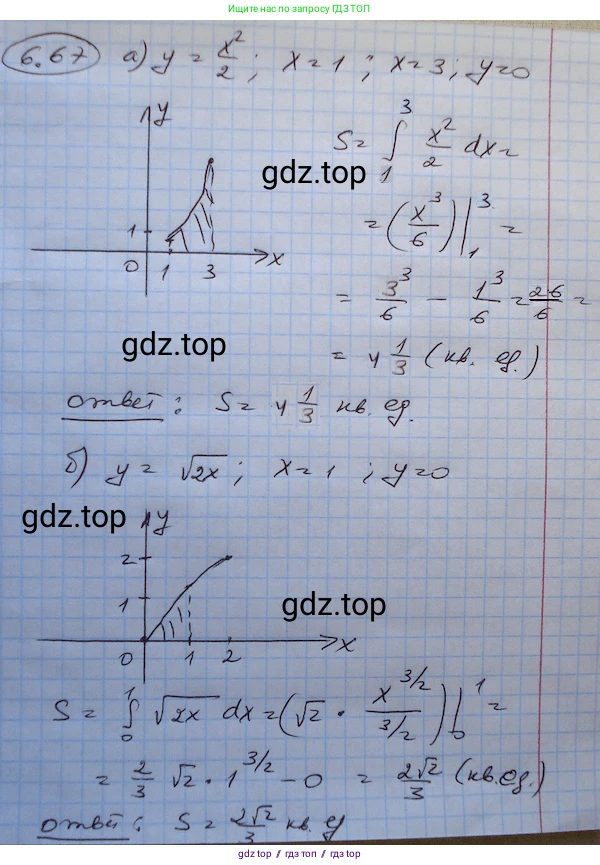 Ищите нас по запросу ГДЗ ТОП
6.67 а) y = x²/2; x=1; x=3; y=0
y
S = ∫₁³ x²/2 dx =
3
gdz.top
= (x³/6)|₁³ =
1
0 1 3 x
= 3³/6 - 1³/6 = 26/6 =
gdz.top
= 4 1/3 (кв. ед.)
ответ: S = 4 1/3 кв. ед.
б) y = √2x; x=1; y=0
gdz.top
y
2
1
gdz.top
0 1 2 x
S = ∫₀¹ √2x dx = (√2 · x^(3/2)/(3/2))|₀¹ =
= 2/3 √2 · 1^(3/2) - 0 = 2√2/3 (кв. ед.)
ответ: S = 2√2/3 кв. ед
gdz.top / гдз.топ / гдз.top